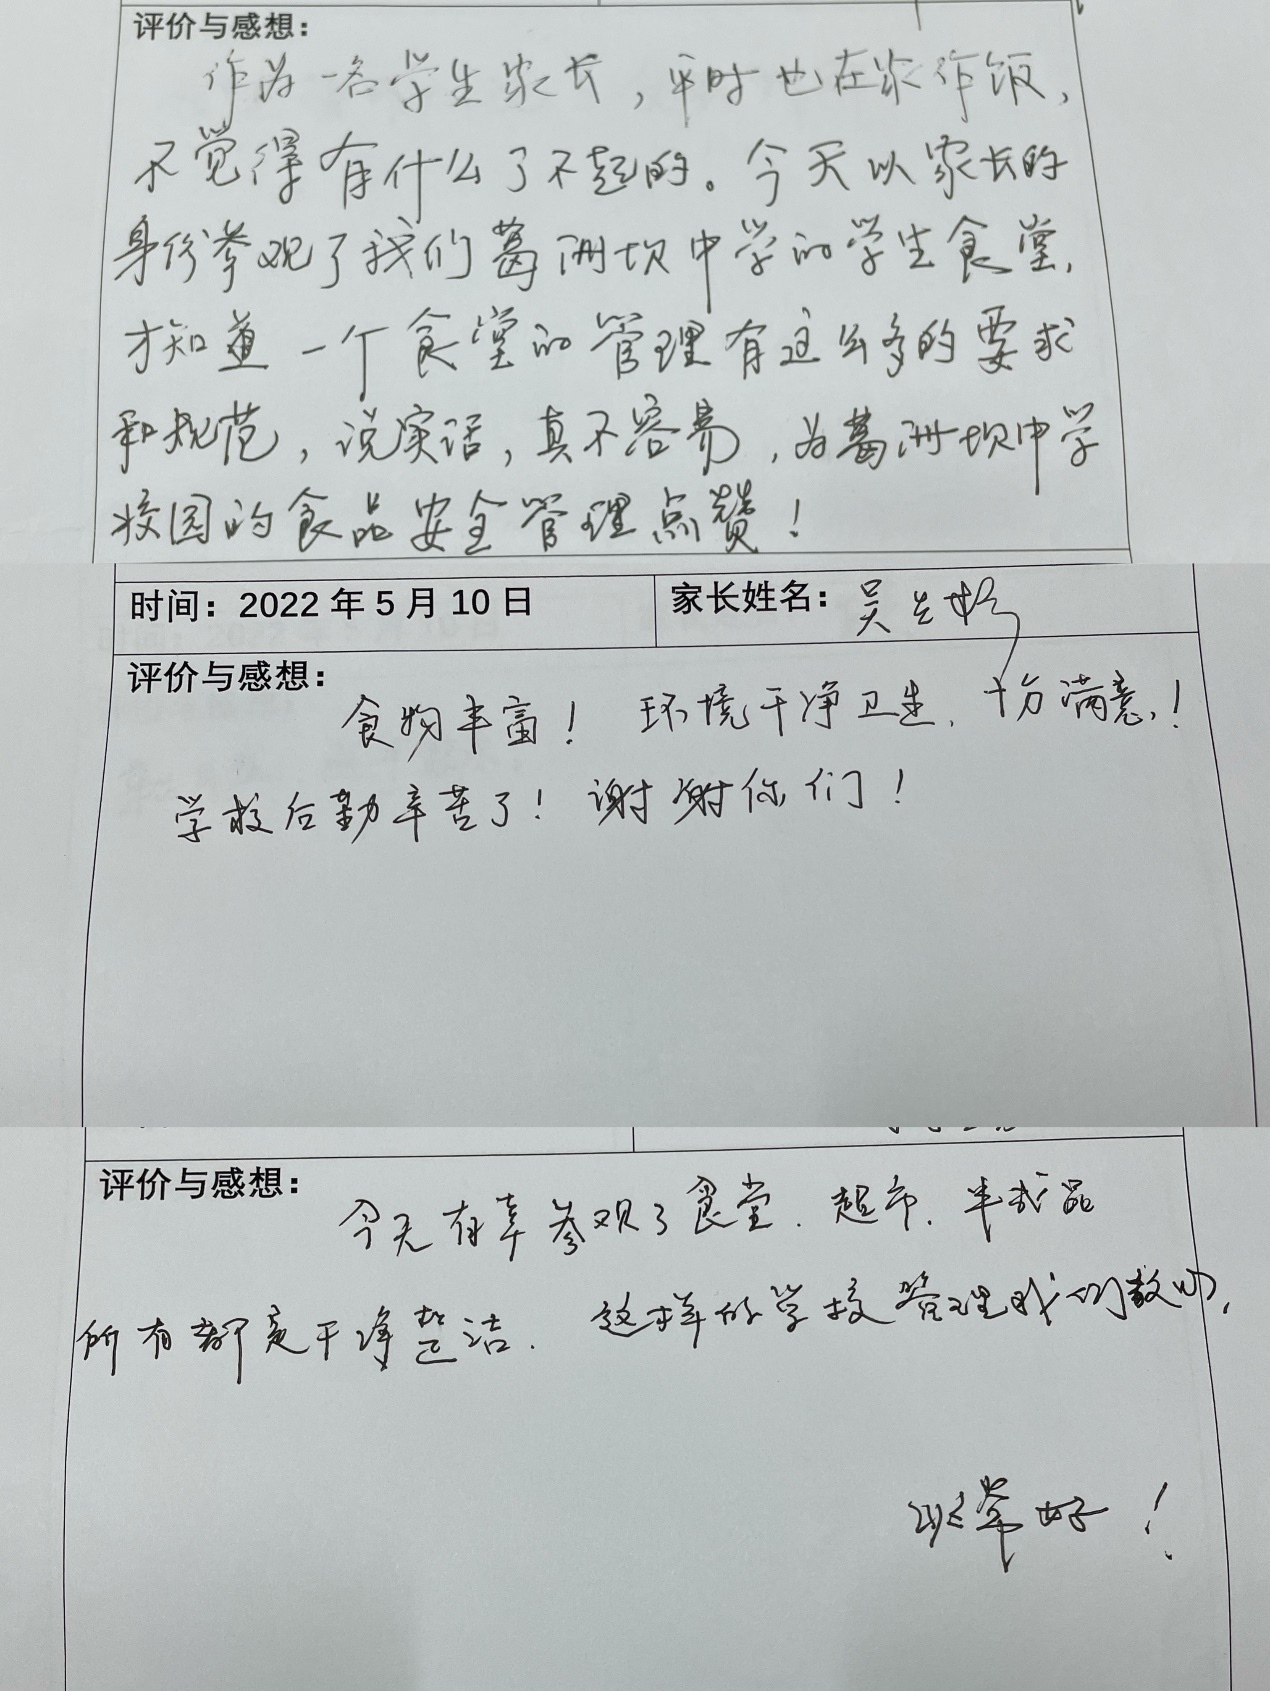 评价与感想：
作为一名学生家长，平时也在家作饭，
不觉得有什么了不起的。今天以家长的
身份参观了我们葛洲坝中学的学生食堂，
才知道一个食堂的管理有这么多的要求
和规范，说实话，真不容易，为葛洲坝中学
校园的食品安全管理点赞！
时间：2022年5月10日 家长姓名：吴
评价与感想：
食物丰富！环境干净卫生，十分满意！
学校后勤辛苦了！谢谢你们！
评价与感想：
今天有幸参观了食堂、超市、半成品
所有都是干净整洁．这样的学校管理我们
非常好！